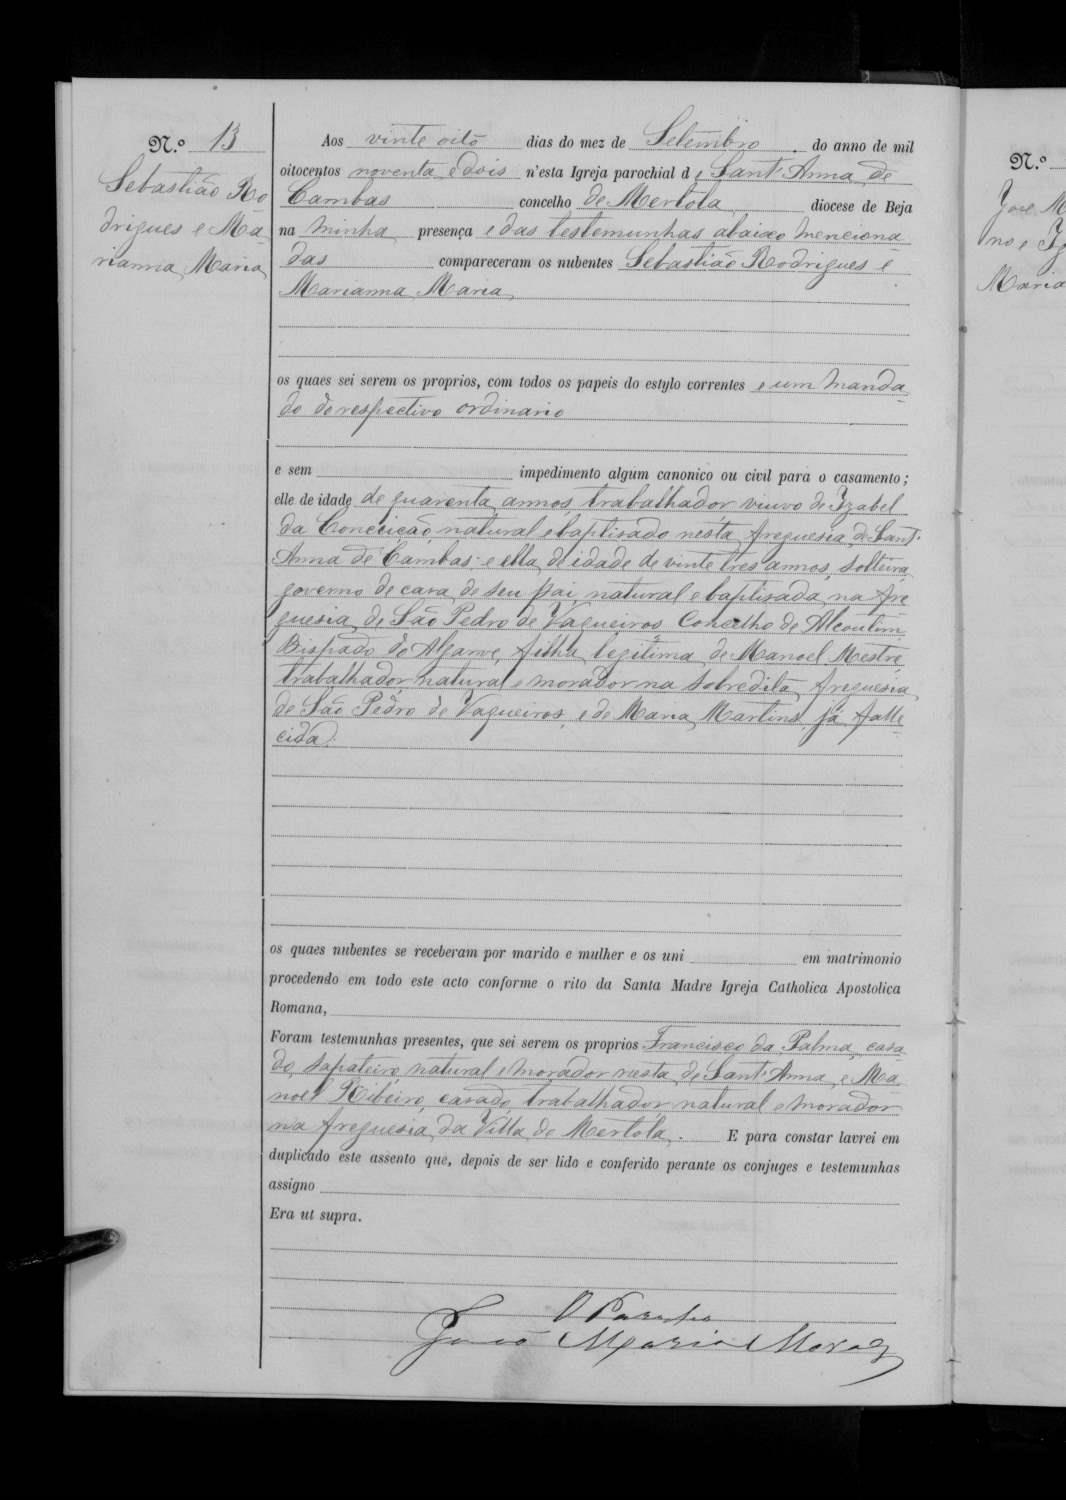 N.º 13
Sebastião Ro
drigues e Ma-
rianna Maria
Aos vinte oito dias do mez de Setembro do anno de mil
oitocentos noventa e dois n'esta Igreja parochial de Sant'Anna de
Cambas concelho de Mertola diocese de Beja
na minha presença e das testemunhas abaixo menciona
das compareceram os nubentes Sebastião Rodrigues e
Marianna Maria,
os quaes sei serem os proprios, com todos os papeis do estylo correntes e um manda-
do do respectivo ordinario
e sem impedimento algum canonico ou civil para o casamento;
elle de idade de quarenta annos, trabalhador, viuvo de Izabel
da Conceição, natural e baptisado nesta freguesia de Sant'
Anna de Cambas e ella de idade de vinte tres annos, solteira,
governo de casa de seu pai, natural e baptisada na fre
guesia de São Pedro de Vaqueiros Concelho de Alcoutim
Bispado do Algarve, filha legitima de Manoel Mestre,
trabalhador natural e morador na sobredita freguesia
de São Pedro de Vaqueiros, e de Maria Martins, já falle-
cida.
os quaes nubentes se receberam por marido e mulher e os uni em matrimonio
procedendo em todo este acto conforme o rito da Santa Madre Igreja Catholica Apostolica
Romana,
Foram testemunhas presentes, que sei serem os proprios Francisco da Palma, casa-
do, sapateiro, natural e morador nesta de Sant'Anna, e Ma-
noel Ribeiro, casado, trabalhador natural e morador
na freguesia da Villa de Mertola. E para constar lavrei em
duplicado este assento que, depois de ser lido e conferido perante os conjuges e testemunhas
assigno
Era ut supra.
O Parocho
Maria
N.º
Jose M
no e
Maria